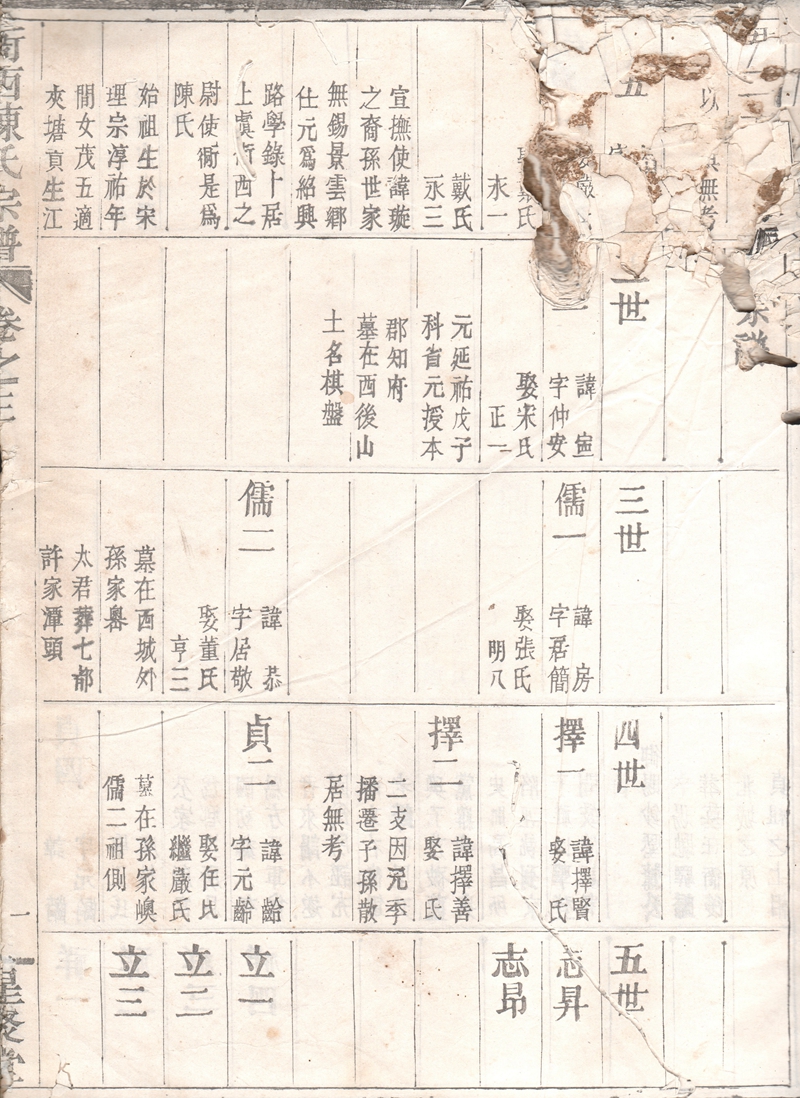 五
以
無考
氏
戴氏
永一
永三
宣撫使諱璇
之裔孫世家
無錫景雲鄉
仕元爲紹興
路學錄卜居
上虞衕西之
尉使衕是爲
陳氏
始祖生於宋
理宗淳祐年
間女茂五適
夾塘貢生江
二世
諱宣
字仲安
娶宋氏
正一
元延祐戊子
科省元授本
郡知府
墓在西後山
土名棋盤
三世
儒一
諱房
字居簡
娶張氏
明八
儒二
諱恭
字居敬
娶董氏
亨三
墓在西城外
孫家嶴
太君葬七都
許家潭頭
四世
擇一
諱擇賢
娶 氏
擇二
諱擇善
娶 氏
二支因元季
播遷子孫散
居無考
貞二
諱齡
字元齡
娶任氏
繼嚴氏
墓在孫家嶴
儒二祖側
五世
志昇
志昂
立一
立二
立三
衕西陳氏宗譜
卷之三
一
星聚堂